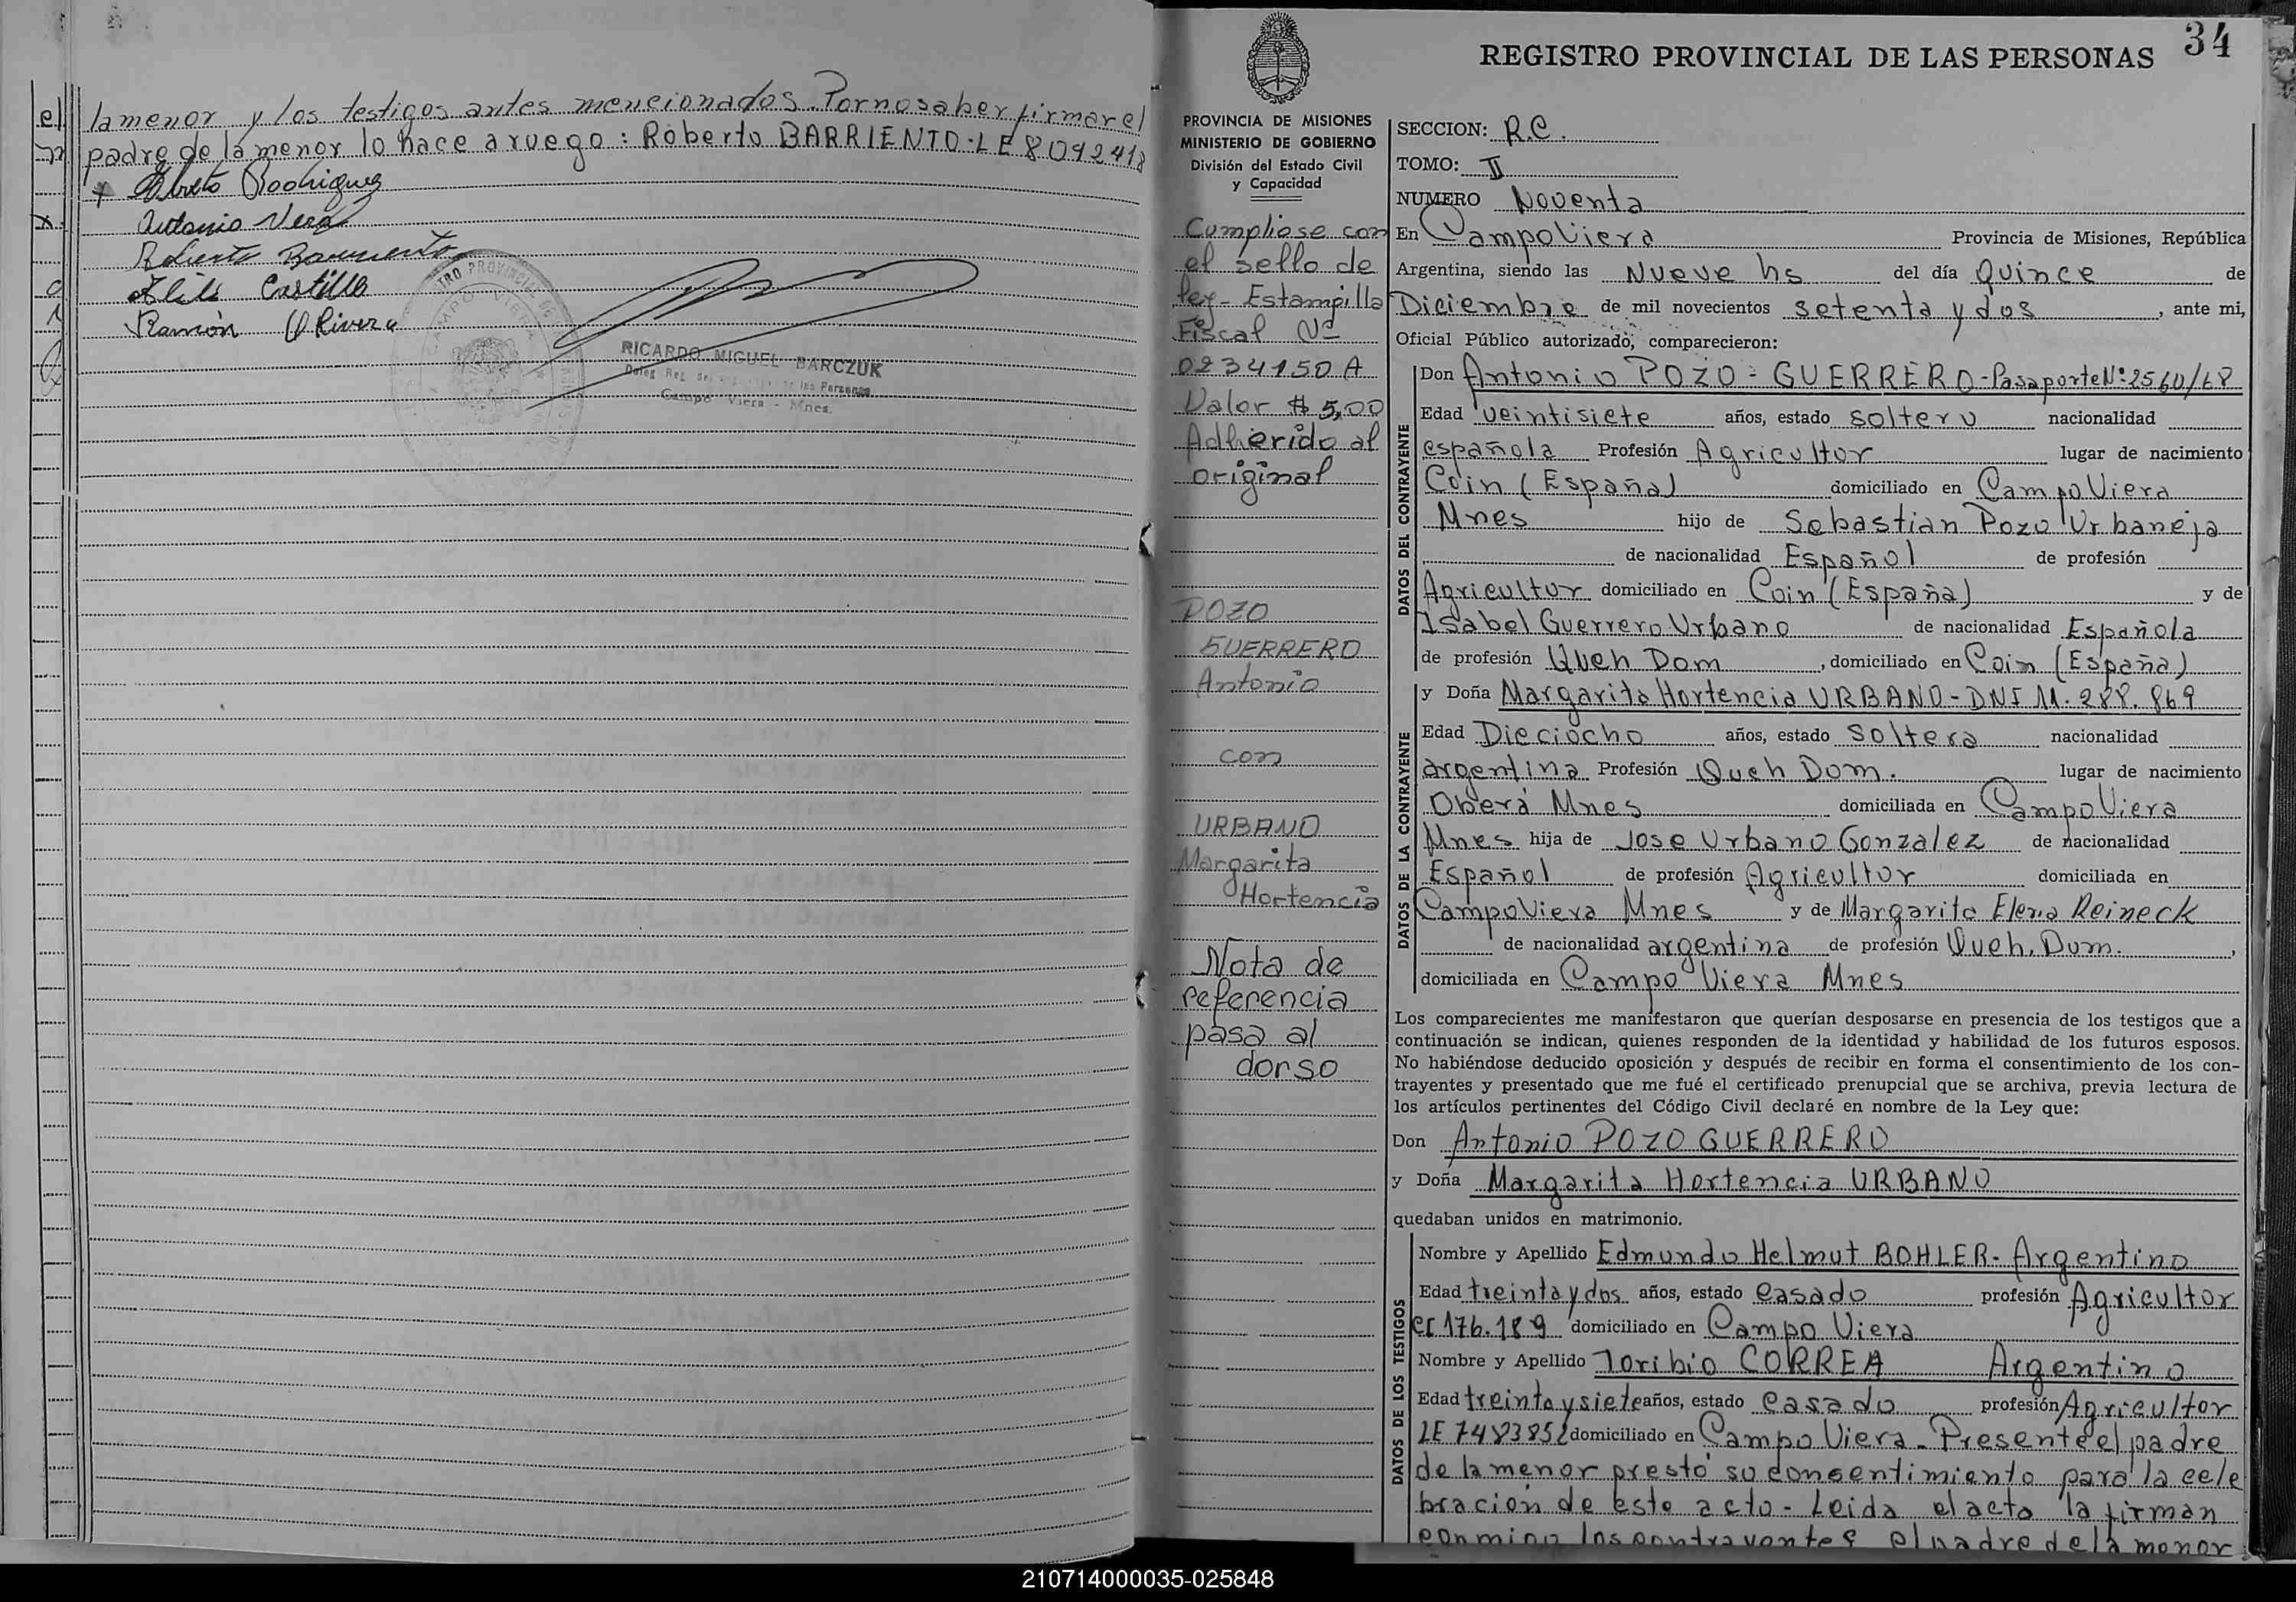 la menor y los testigos antes mencionados. Por no saber firmar el
padre de la menor lo hace a ruego: Roberto BARRIENTO - LE 8092418
Rodriguez
Antonio Vera
Roberto Barriento
Castillo
Ramón Rivera
RICARDO MIGUEL BARCZUK
Campo Viera - Mnes.
34
REGISTRO PROVINCIAL DE LAS PERSONAS
PROVINCIA DE MISIONES
MINISTERIO DE GOBIERNO
División del Estado Civil
y Capacidad
Cumpliose con
el sello de
ley - Estampilla
Fiscal Nº
0234150 A
Valor $ 5,00
Adherido al
original
POZO
GUERRERO
Antonio
con
URBANO
Margarita
Hortencia
Nota de
referencia
pasa al
dorso
SECCION: R.C.
TOMO: II
NUMERO Noventa
En Campo Viera Provincia de Misiones, República
Argentina, siendo las Nueve hs del día Quince de
Diciembre de mil novecientos setenta y dos, ante mi,
Oficial Público autorizado, comparecieron:
DATOS DEL CONTRAYENTE
Don Antonio POZO - GUERRERO - Pasaporte Nº 2560/68
Edad veintisiete años, estado soltero nacionalidad
española Profesión Agricultor lugar de nacimiento
Coin (España) domiciliado en Campo Viera
Mnes hijo de Sebastian Pozo Urbaneja
de nacionalidad Español de profesión
Agricultor domiciliado en Coin (España) y de
Isabel Guerrero Urbano de nacionalidad Española
de profesión Queh Dom, domiciliado en Coin (España)
DATOS DE LA CONTRAYENTE
y Doña Margarita Hortencia URBANO - DNI 11.288.869
Edad Dieciocho años, estado Soltera nacionalidad
argentina Profesión Queh Dom. lugar de nacimiento
Oberá Mnes domiciliada en Campo Viera
Mnes hija de Jose Urbano Gonzalez de nacionalidad
Español de profesión Agricultor domiciliada en
Campo Viera Mnes y de Margarita Elena Reineck
de nacionalidad argentina de profesión Queh. Dom.,
domiciliada en Campo Viera Mnes
Los comparecientes me manifestaron que querían desposarse en presencia de los testigos que a
continuación se indican, quienes responden de la identidad y habilidad de los futuros esposos.
No habiéndose deducido oposición y después de recibir en forma el consentimiento de los con-
trayentes y presentado que me fué el certificado prenupcial que se archiva, previa lectura de
los artículos pertinentes del Código Civil declaré en nombre de la Ley que:
Don Antonio POZO GUERRERO
y Doña Margarita Hortencia URBANO
quedaban unidos en matrimonio.
DATOS DE LOS TESTIGOS
Nombre y Apellido Edmundo Helmut BOHLER - Argentino
Edad treinta y dos años, estado casado profesión Agricultor
CI 176.189 domiciliado en Campo Viera
Nombre y Apellido Toribio CORREA Argentino
Edad treinta y siete años, estado casado profesión Agricultor
LE 7483852 domiciliado en Campo Viera - Presente el padre
de la menor prestó su consentimiento para la cele
bración de este acto - Leida el acta la firman
conmigo los contrayentes el padre de la menor
210714000035-025848